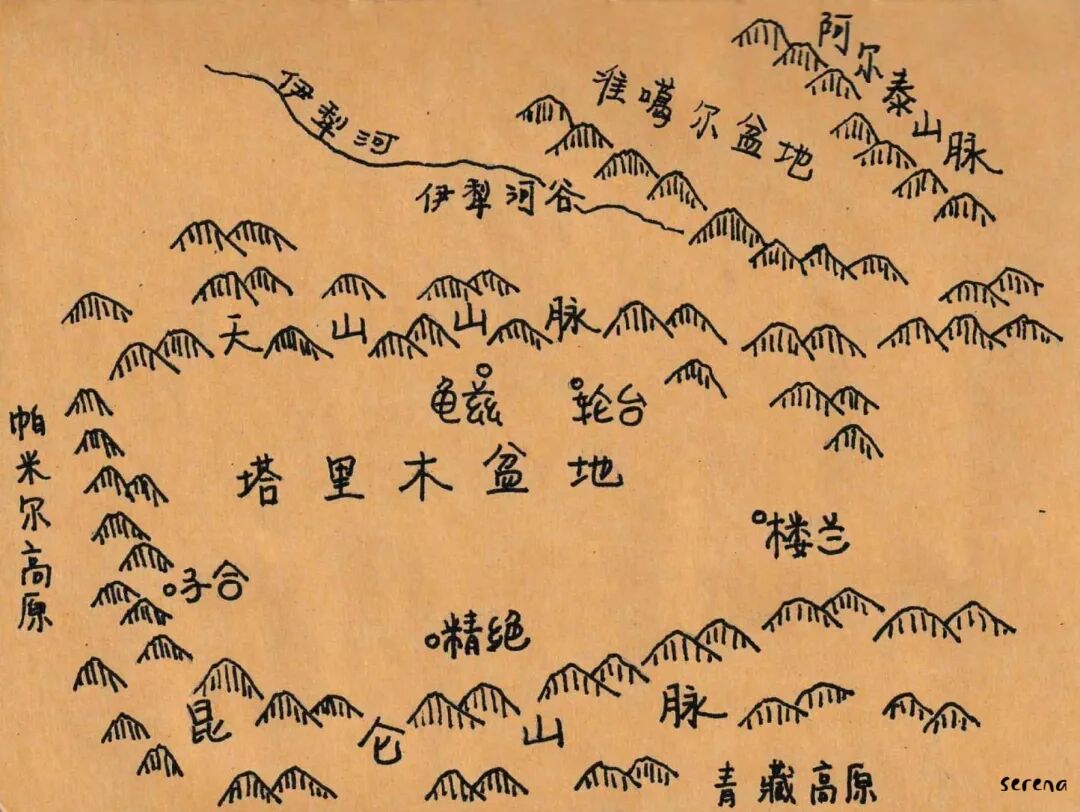 阿尔泰山脉
准噶尔盆地
伊犁河
伊犁河谷
天山山脉
龟兹
轮台
帕米尔高原
塔里木盆地
楼兰
子合
精绝
昆仑山脉
青藏高原
serena